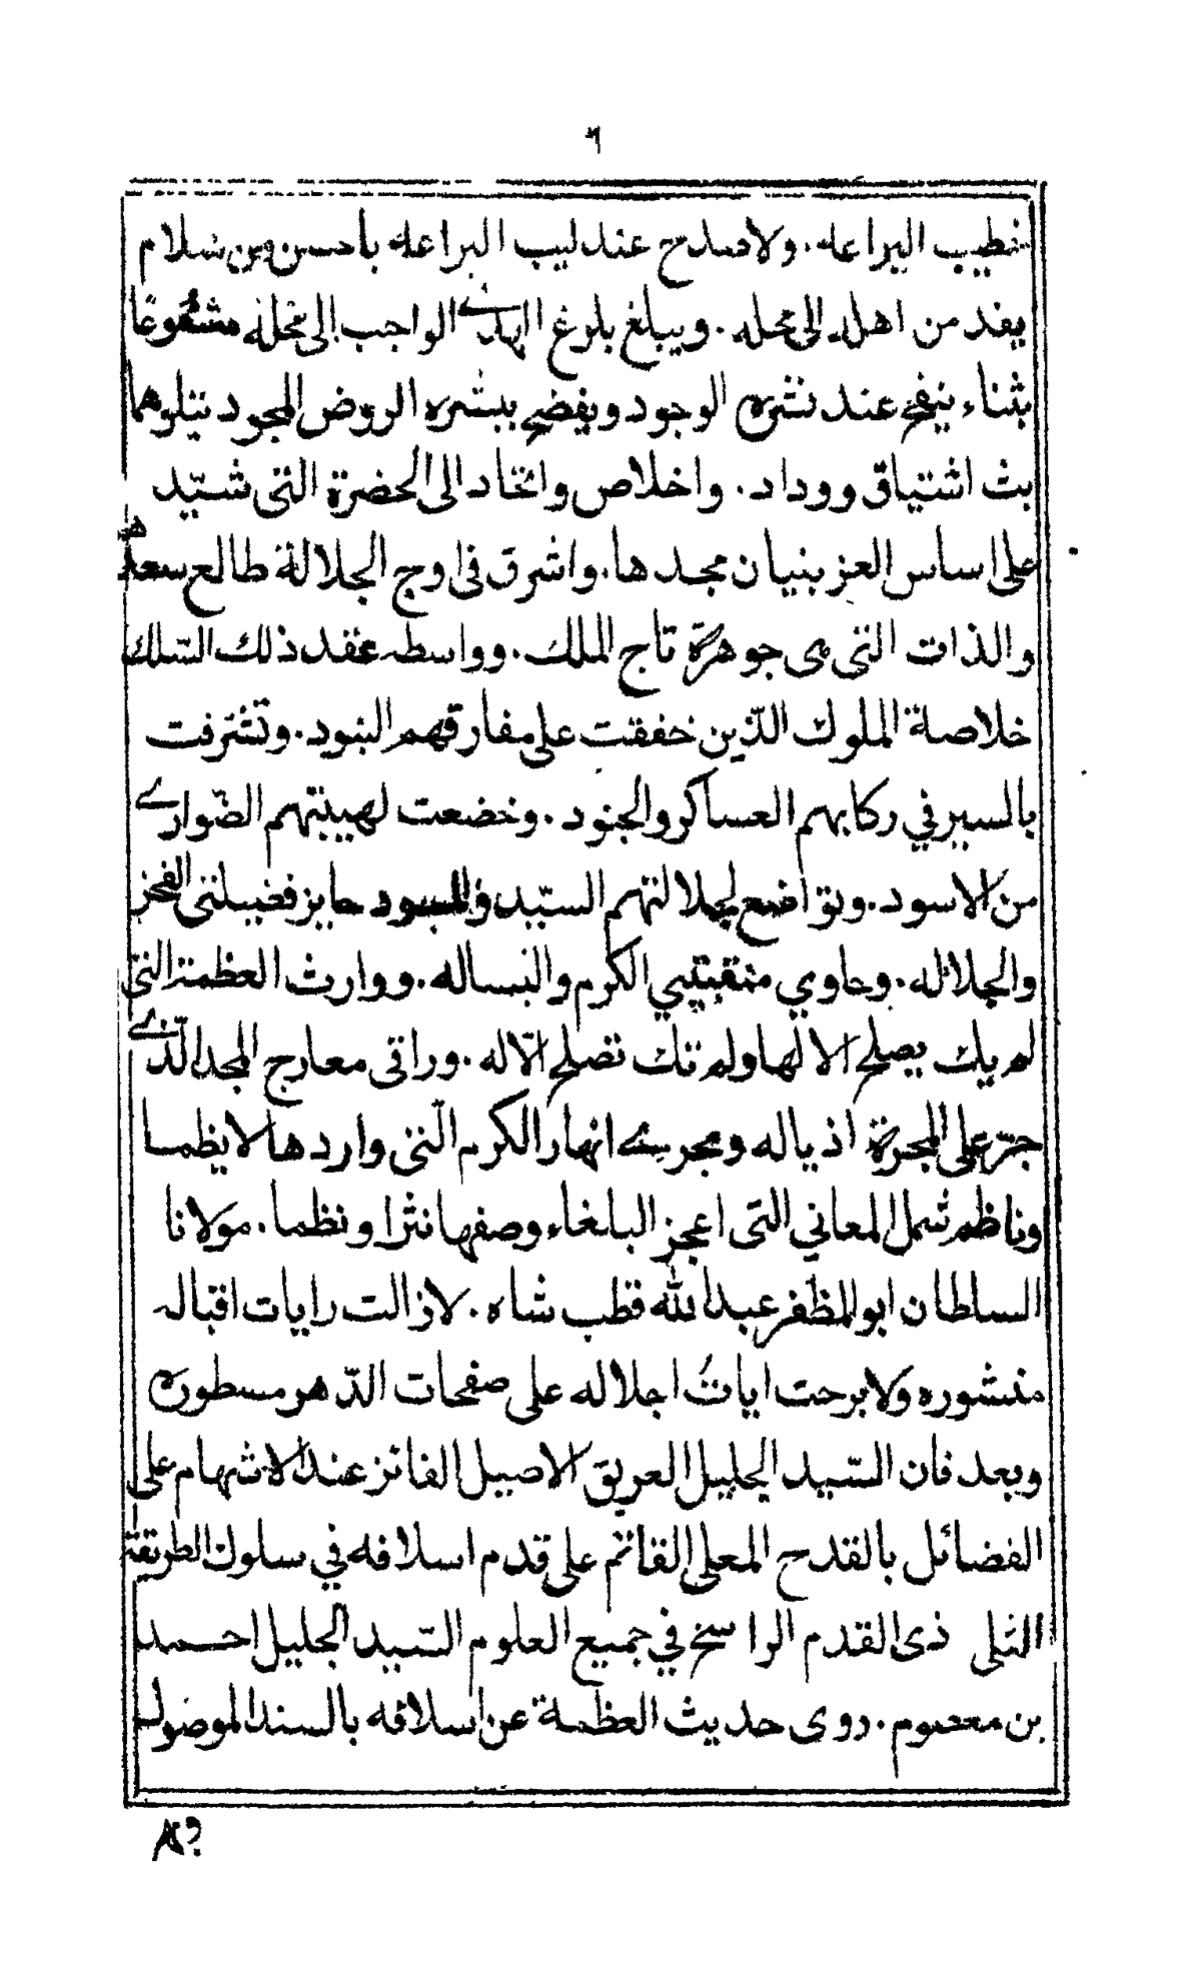 ٦
خطيب اليراعه. ولا صدح عندليب البراعه باحسن من سلام
يفد من اهله الى محله. ويبلغ بلوغ الهدي الواجب الى محله مشفوعًا
بثناء ينفح عند نشره الوجود ويفضح ببشره الروض المجود نتلوهما
بث اشتياق ووداد. واخلاص واتحاد الى الحضرة التى شيّد
على اساس العز بنيان مجدها. واشرق فى اوج الجلالة طالع سعدها
والذات التى هى جوهرة تاج الملك. وواسطه عقد ذلك السّلك
خلاصة الملوك الذّين خفقت على مفارقهم البنود. وتشرفت
بالسير في ركابهم العساكر والجنود. وخضعت لهيبتهم الضّواري
من الاسود. وتواضع لجلالتهم السيّد والمسود حايز فضيلتى الفخر
والجلاله. وحاوي منقبتيي الكرم والبساله. ووارث العظمة التى
لم يك يصلح الا لها ولم تك تصلح الّا له. وراقى معارج المجد الّذي
جرّ على المجرة اذياله ومجري انهار الكرم الّتى واردها لا يظما
وناظم شمل المعاني التى اعجز البلغاء وصفها نثرا ونظما. مولانا
السلطان ابو المظفر عبد الله قطب شاه. لا زالت رايات اقباله
منشوره ولا برحت اياتُ اجلاله على صفحات الدّهر مسطوره
وبعد فان السّيد الجليل العريق الاصيل الفائز عند الاشهام على
الفضائل بالقدح المعلى القائم على قدم اسلافه في سلوك الطريقة
المثلى ذى القدم الراسخ في جميع العلوم السّيد الجليل احمد
بن معصوم. روى حديث العظمة عن اسلافه بالسند الموصول